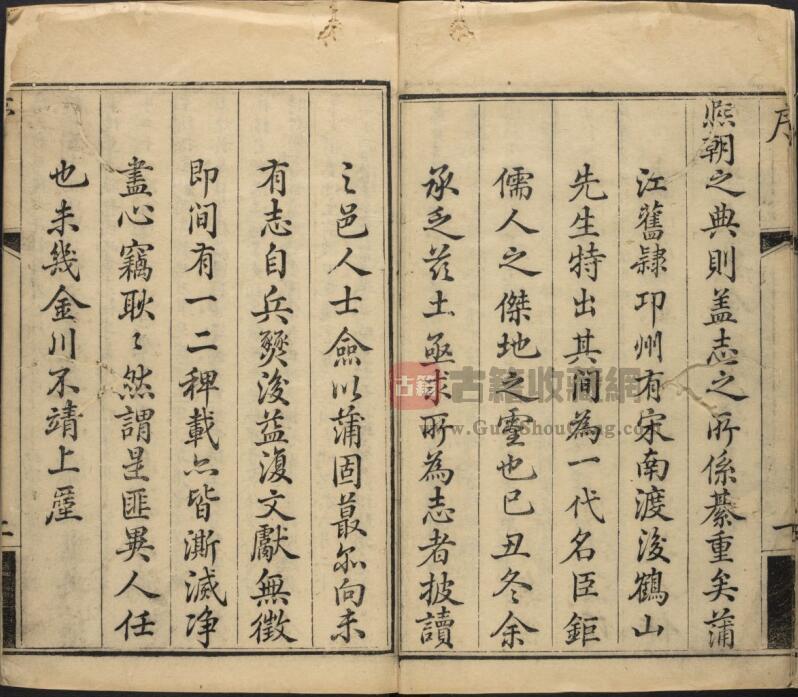 序
熙朝之典則蓋志之所係綦重矣蒲
江舊隸卭州有宋南渡後鶴山
先生特出其间為一代名臣鉅
儒人之傑地之靈也己丑冬余
承乏兹土亟求所為志者披讀
之邑人士僉以蒲固蕞尔向未
有志自兵燹後益復文獻無徵
即间有一二稗載亦皆澌滅净
盡心竊耿〻然謂是匪異人任
也未幾金川不靖上廑
古籍 古籍收藏網
www.GuJiShouCang.com